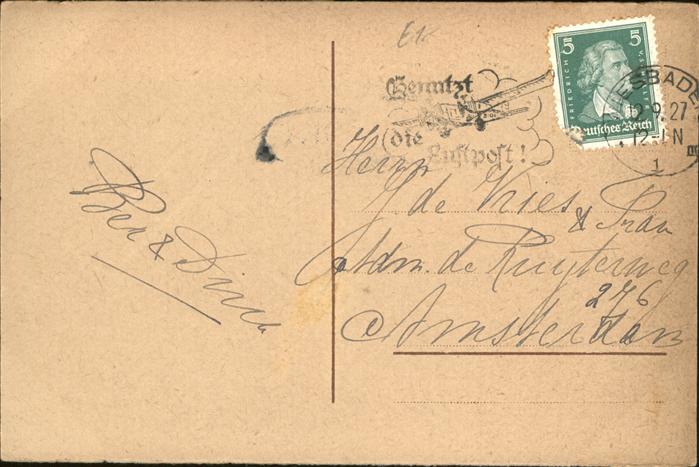 E1.
Benutzt
die
Luftpost!
5 5
FRIEDRICH
Deutsches Reich
WIESBADE
2.9.27
12-1N
1
Herrn
J de Vries & Frau
Adm. de Ruyterweg
276
Amsterdam
Ber & Dina